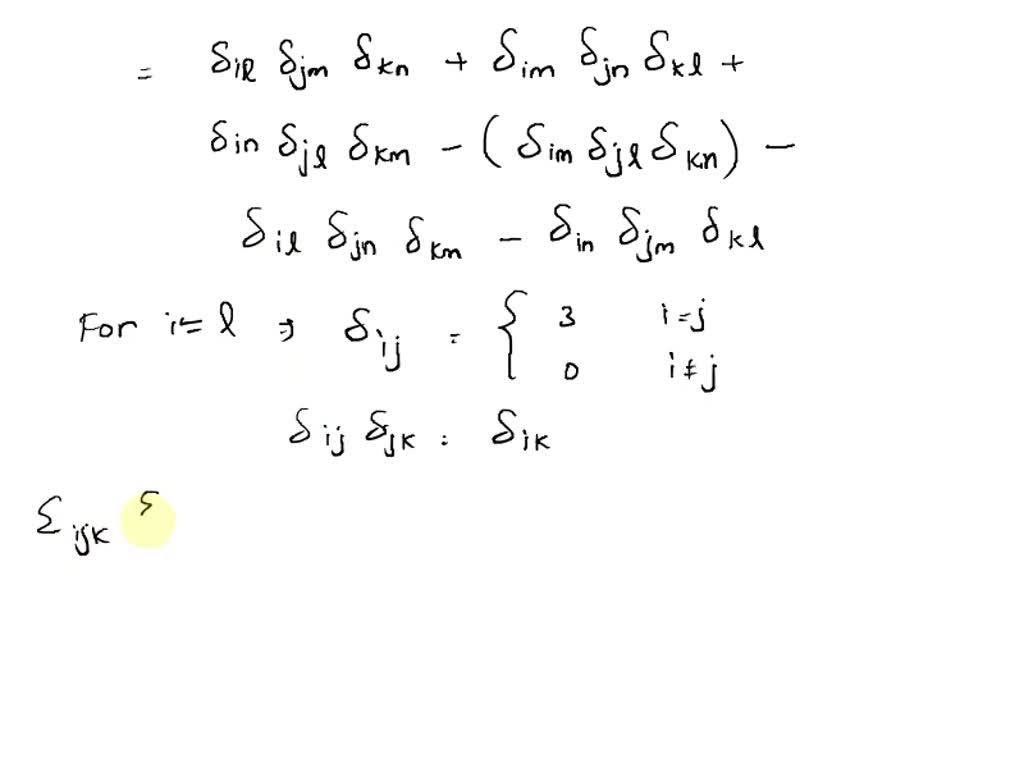 = δil δjm δkn + δim δjn δkl +
δin δjl δkm - (δim δjl δkn) -
δil δjn δkm - δin δjm δkl
For i = l ⇒ δij = { 3 i=j
0 i≠j
δij δjk = δik
Σijk